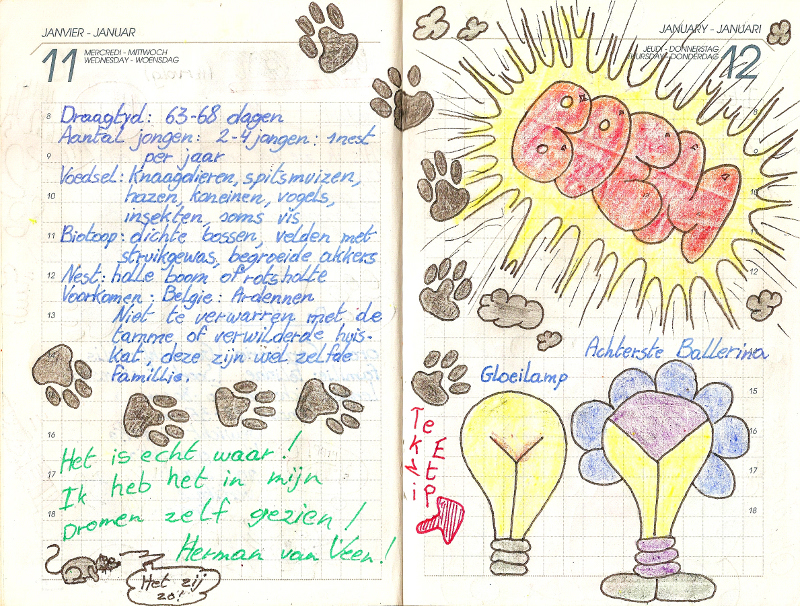 JANVIER - JANUAR
11 MERCREDI - MITTWOCH
WEDNESDAY - WOENSDAG
8 Draagtyd: 63-68 dagen
Aantal jongen: 2-4 jongen: 1 nest
9 per jaar
Voedsel: Knaagdieren, spitsmuizen,
10 hazen, koneinen, vogels,
insekten, soms vis
11 Biotoop: dichte bossen, velden met
struikgewas, begroeide akkers
12 Nest: holle boom of rotsholte
Voorkomen: Belgie: Ardennen
13 Niet te verwarren met de
tamme of verwilderde huis-
14 kat, deze zijn wel zelfde
famillie.
16
Het is echt waar!
17 Ik heb het in mijn
18 Dromen zelf gezien!
Herman van Veen!
Het zij
zo!
JANUARY - JANUARI
JEUDI - DONNERSTAG
THURSDAY - DONDERDAG 12
8
9
10
11
12
Achterste Ballerina
Gloeilamp
15
16
17
18